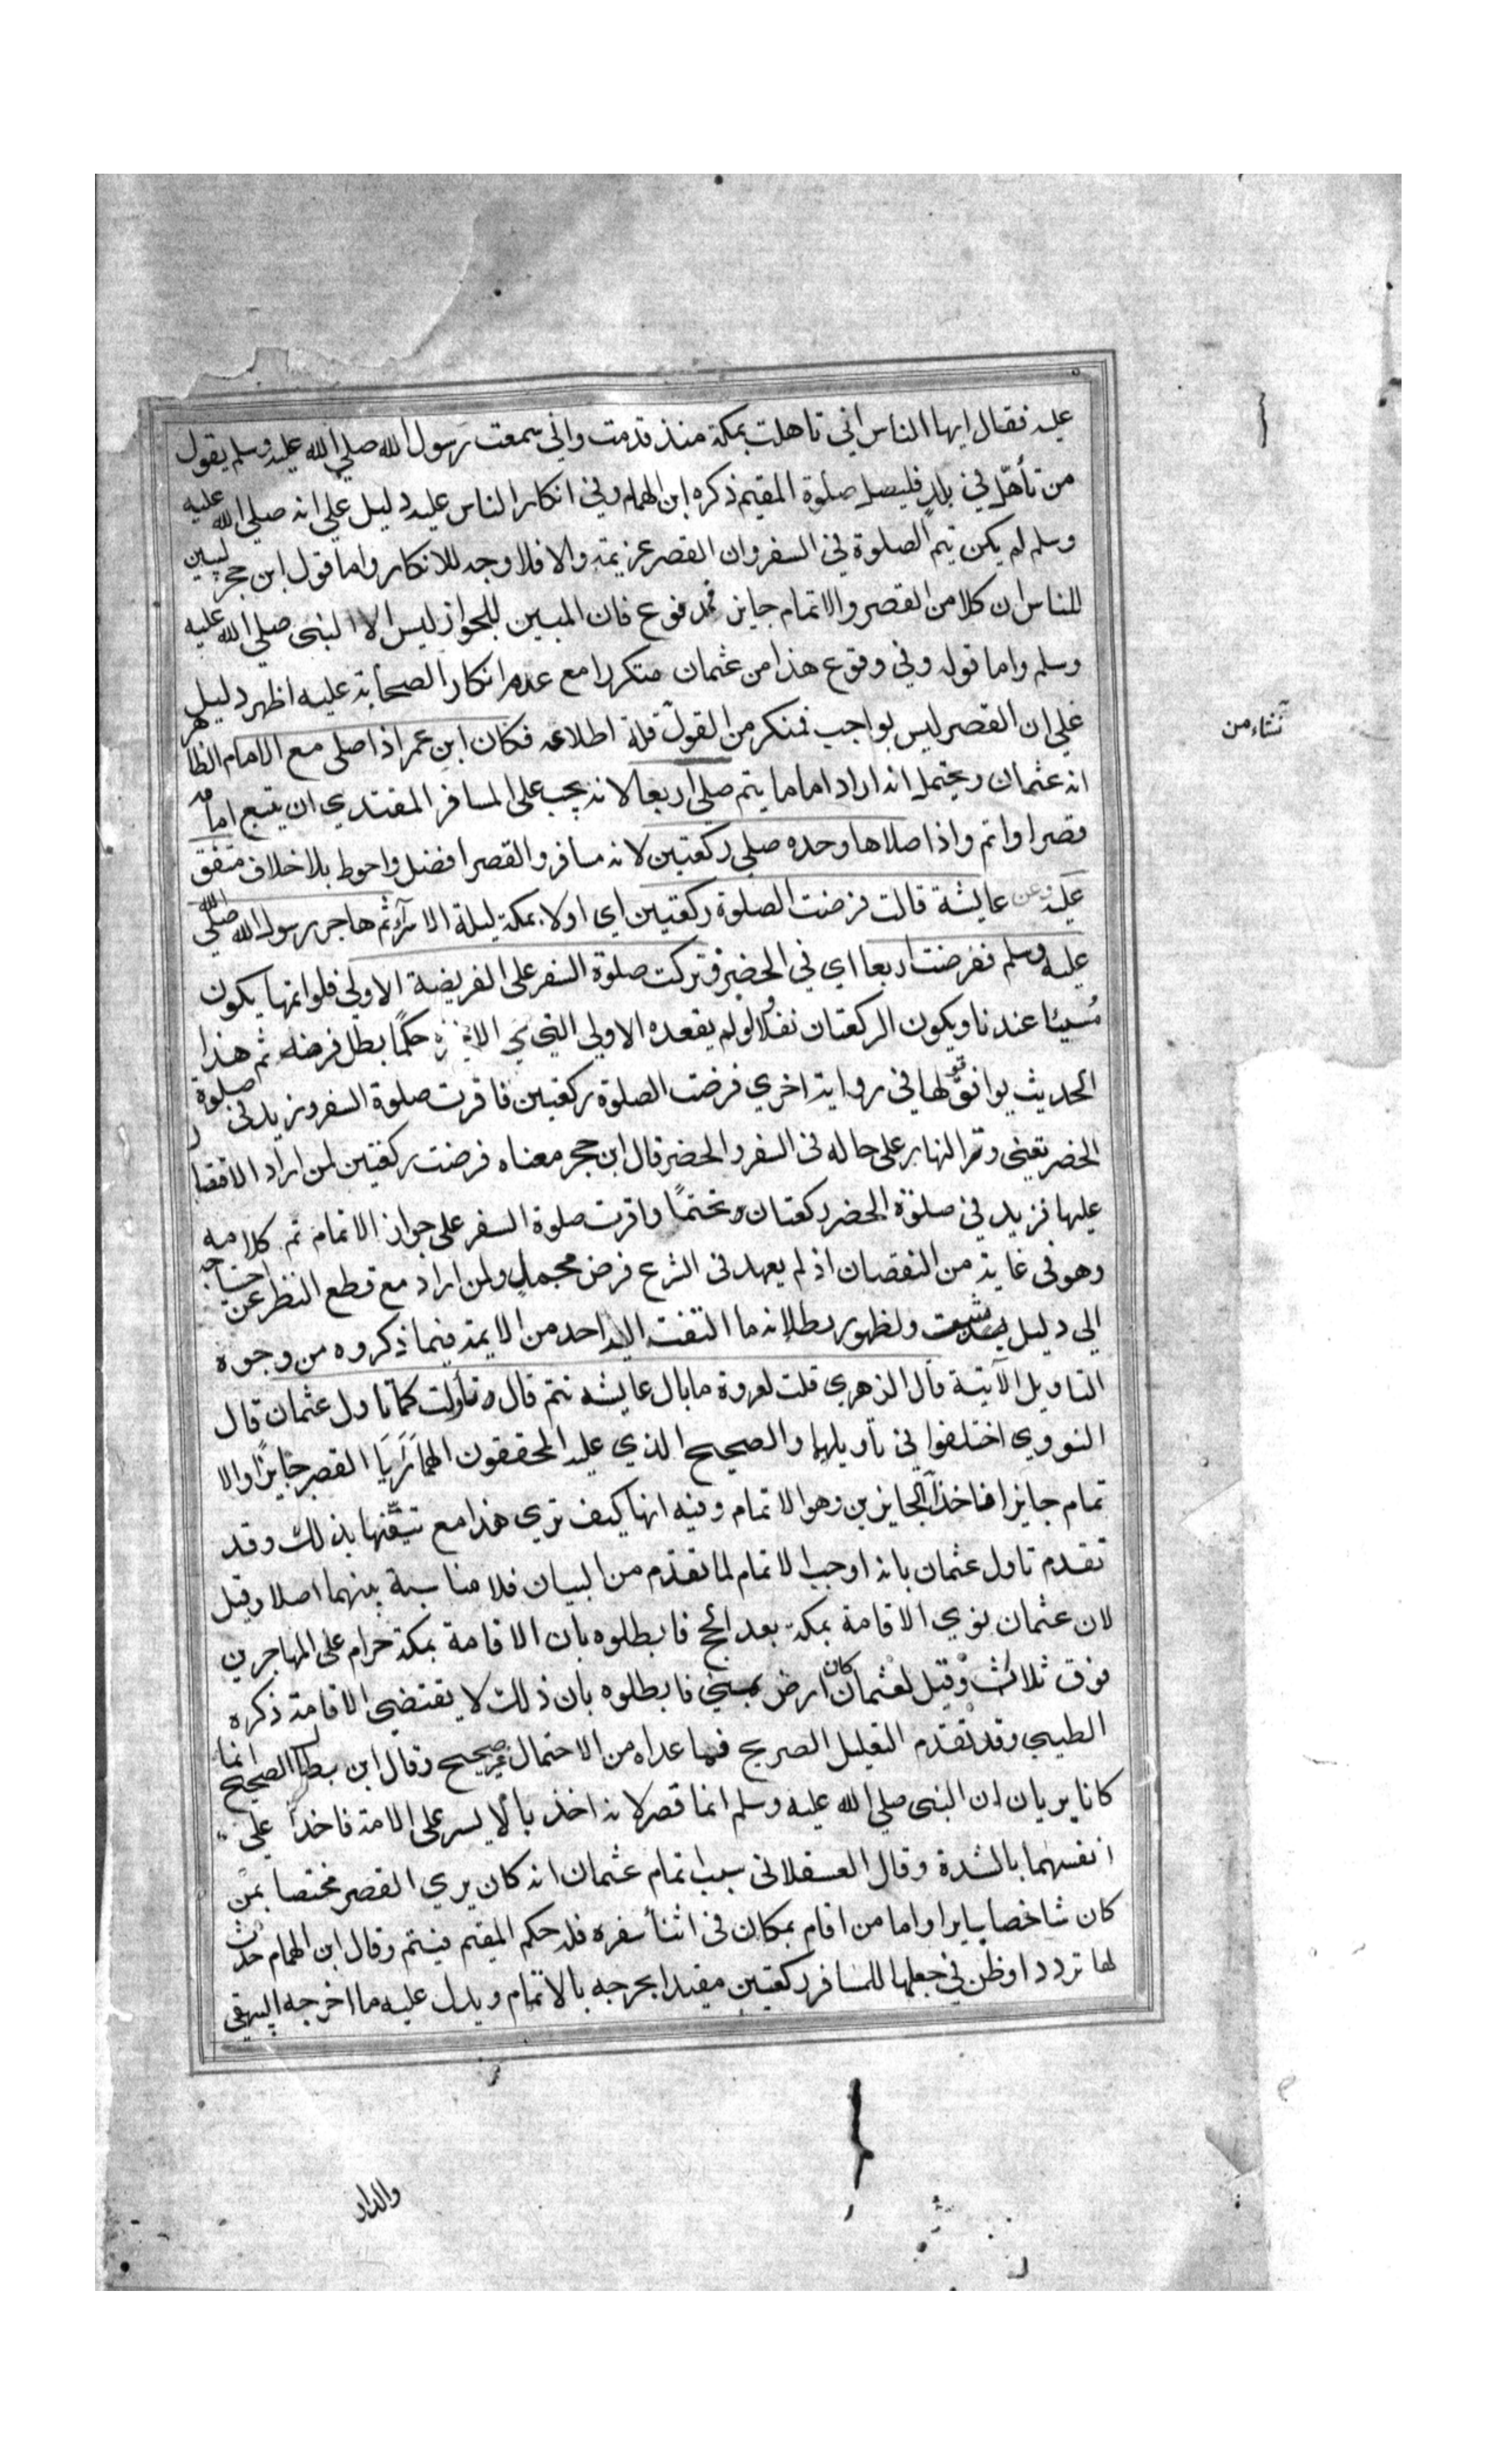 عليه فقال ايها الناس اني تاهلت بمكة منذ قدمت واني سمعت رسول الله صلي الله عليه وسلم يقول
من تأهل في بلد فليصل صلوة المقيم ذكره ابن الهمام وفي انكار الناس عليه دليل علي انه صلي الله عليه
وسلم لم يكن يتم الصلوة في السفر وان القصر عزيمة والا فلا وجه للانكار واما قول ابن حجر ليبين
للناس ان كلا من القصر والاتمام جايز فمدفوع فان المبين للجواز ليس الا النبي صلي الله عليه
وسلم واما قوله وفي وقوع هذا من عثمان متكررا مع عدم انكار الصحابة عليه اظهر دليل
علي ان القصر ليس بواجب فمنكر من القول قلة اطلاعه فكان ابن عمر اذا صلي مع الامام الظاهر
نشاء من
انه عثمان ويحتمل انه اراد اماما يتم صلي اربعا لانه يجب علي المسافر المقتدي ان يتبع امامه
قصرا واتم واذا صلاها وحده صلي ركعتين لانه مسافر والقصر افضل واحوط بلا خلاف متفق
عليه وعن عايشة قالت فرضت الصلوة ركعتين اي اولا بمكة ليلة الاسرآء ثم هاجر رسول الله صلي الله
عليه وسلم ففرضت اربعا اي في الحضر وتركت صلوة السفر علي الفريضة الاولي فلو اتمها يكون
مُسيئا عندنا ويكون الركعتان نفلا ولو لم يقعده الاولي التي هي حكمًا بطل فرضه ثم هذا
الحديث يوافق قولها في رواية اخري فرضت الصلوة ركعتين فاقرت صلوة السفر وزيد في صلوة
الحضر تعني وتر النهار علي حاله في السفر والحضر قال ابن حجر معناه فرضت ركعتين لمن اراد الاقتصار
عليها فزيد في صلوة الحضر ركعتان تحتمًا واقرت صلوة السفر علي جواز الاتمام تم كلامه
وهو في غاية من النقصان اذ لم يعهد في الشرع فرض مجمل ولمن اراد مع قطع النظر عن احتياجه
الي دليل مثبت ولظهور بطلانه ما التفت اليه احد من الايمة فيما ذكروه من وجوه
التاويل الآتية قال الزهري قلت لعروة ما بال عايشه تتم قال تأولت كما تاول عثمان قال
النووي اختلفوا في تأويلها والصحيح الذي عليه المحققون انهما رَأَيَا القصر جايزًا والا
تمام جايزا فاخذا بالجايزين وهو الاتمام وفيه انها كيف تري هذا مع تيقنها بذلك وقد
تقدم تاول عثمان بانه اوجب الاتمام لما تقدم من البيان فلا مناسبة بينهما اصلا وقيل
لان عثمان نوي الاقامة بمكة بعد الحج فابطلوه بان الاقامة بمكة حرام علي المهاجرين
فوق ثلاث وقيل لعثمان كان ارض بمني فابطلوه بان ذلك لا يقتضي الاقامة ذكره
الطيبي وقد تقدم التعليل الصريح فما عداه من الاحتمال غير صحيح وقال ابن بطال الصحيح انما
كانا يريان ان النبي صلي الله عليه وسلم انما قصر لانه اخذ بالايسر علي الامة فاخذا علي
انفسهما بالشدة وقال العسقلاني سبب اتمام عثمان انه كان يري القصر مختصا بمن
كان شاخصا سايرا واما من اقام بمكان في اثناء سفره فله حكم المقيم فيتم وقال ابن الهمام حدث
لها تردد او ظن في جعلها للمسافر ركعتين مقيدا بحرجه بالاتمام ويدل عليه ما اخرجه البيهقي
والدار